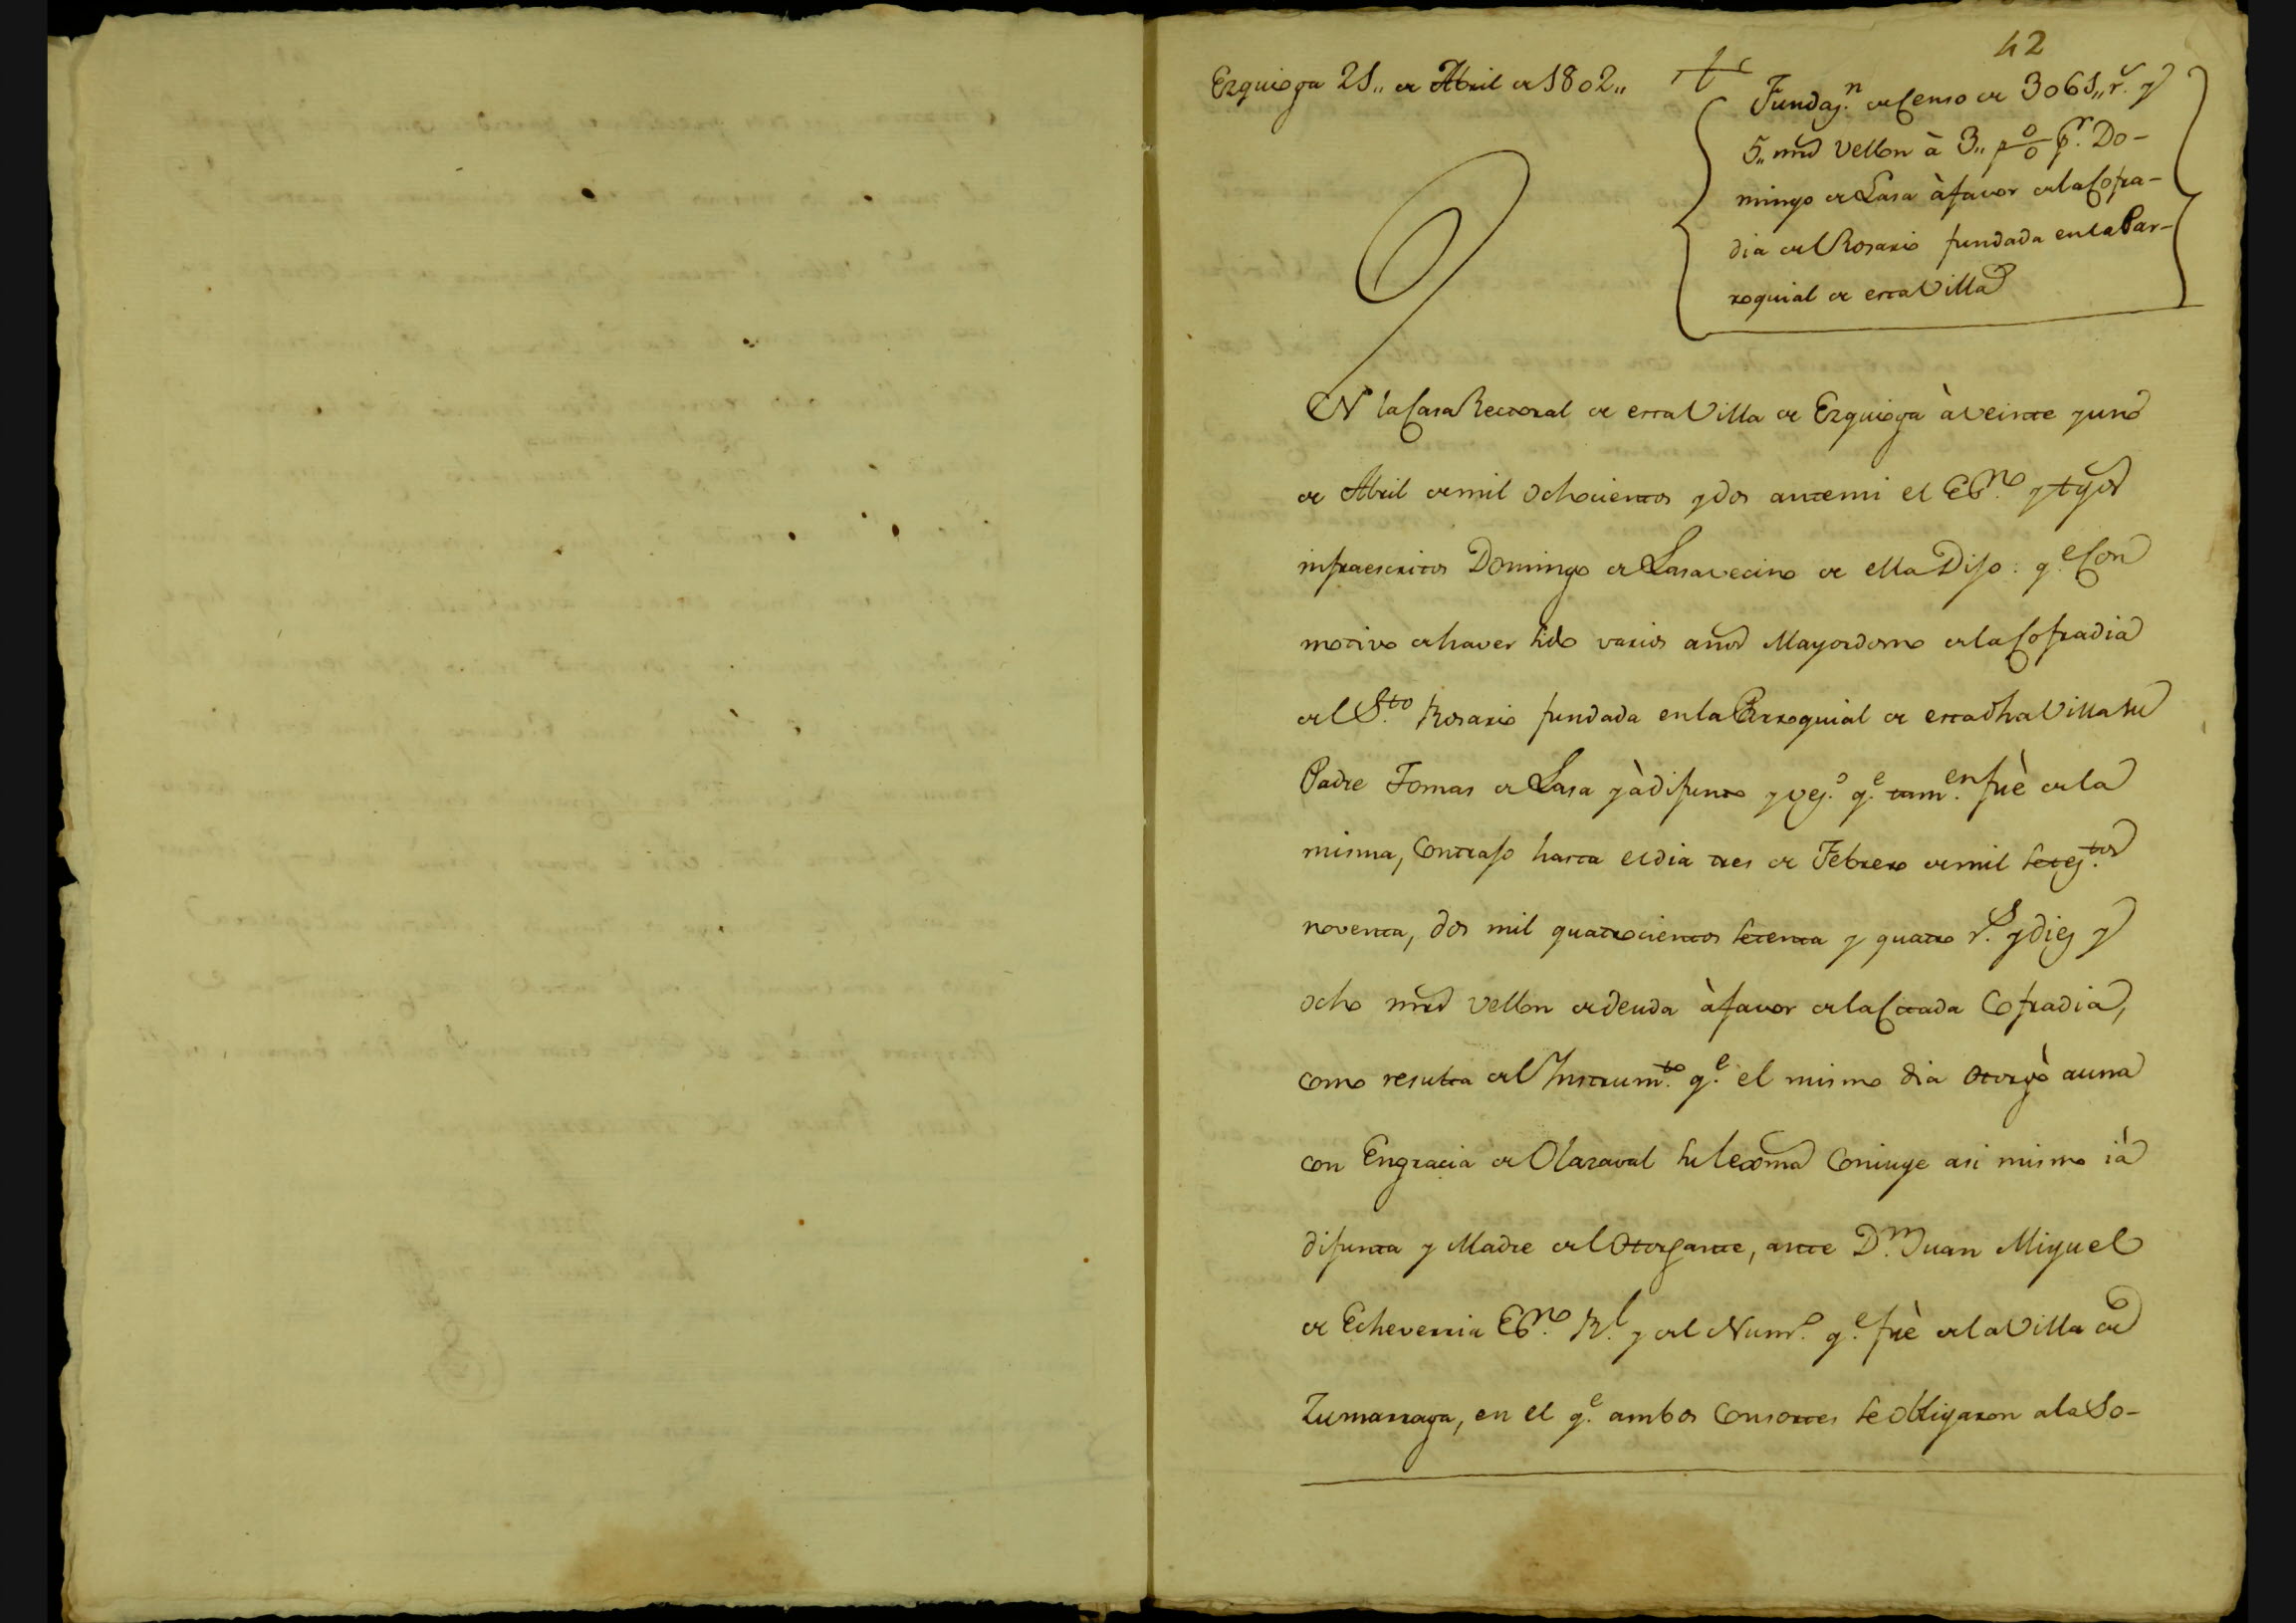 42
Ezquioga 21,, de Abril de 1802,,
Fundaz.n de Censo de 3061,, r.s y
5,, mrs Vellon à 3,, p o/o p.r Do-
mingo de Lasa à favor de la Cofra-
dia del Rosario fundada en la Par-
roquial de esta Villa
EN la Casa Rectoral de esta Villa de Ezquioga à veinte y uno
de Abril de mil ochocientos y dos ante mi el Esno y tgos
infraescritos Domingo de Lasa vecino de ella Dijo: q.e Con
motivo de haver sido varios años Mayordomo de la Cofradia
del S.to Rosario fundada en la Parroquial de esta dha Villa su
Padre Tomas de Lasa yà difunto y vez.o q.e tam.en fuè de la
misma, Contrajo hasta el dia tres de Febrero de mil setez.tos
noventa, dos mil quatrocientos setenta y quatro r.s y diez y
ocho mrs vellon de deuda à favor de la Citada Cofradia,
como resulta del Instrum.to q.e el mismo dia otorgò a una
con Engracia de Olazaval su lexma Coniuge asi mismo ià
difunta y Madre del Otorgante, ante D.n Juan Miguel
de Echeverria Esno R.l y del Num.o q.e fuè de la Villa de
Zumarraga, en el q.e ambos Consortes se obligaron a la So-